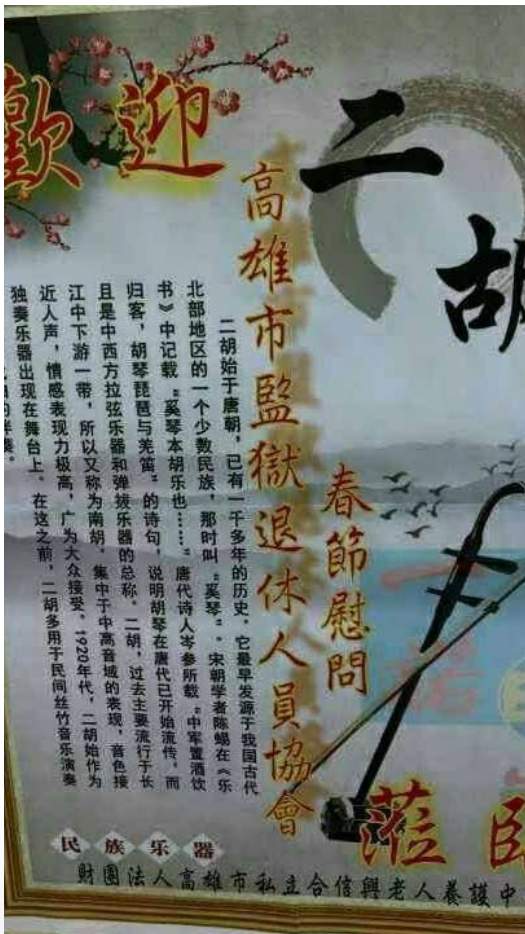 歡迎
二胡
高雄市監獄退休人員協會
春節慰問
二胡始于唐朝，已有一千多年的历史。它最早发源于我国古代
北部地区的一个少数民族，那时叫“奚琴”。宋朝学者陈旸在《乐
书》中记载“奚琴本胡乐也……”唐代诗人岑参所载“中军置酒饮
归客，胡琴琵琶与羌笛”的诗句，说明胡琴在唐代已开始流传，而
且是中西方拉弦乐器和弹拨乐器的总称。二胡，过去主要流行于长
江中下游一带，所以又称为南胡。集中于中高音域的表现，音色接
近人声，情感表现力极高，广为大众接受。1920年代，二胡始作为
独奏乐器出现在舞台上。在这之前，二胡多用于民间丝竹音乐演奏
的伴奏。
蒞
民族乐器
財團法人高雄市私立合信興老人養護中